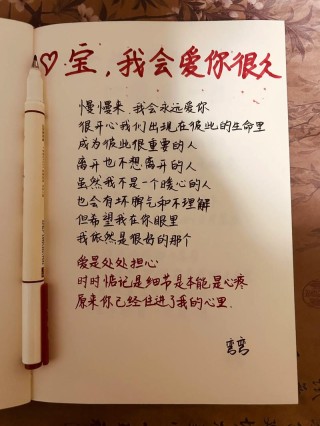 宝，我会爱你很久
慢慢来，我会永远爱你
很开心我们出现在彼此的生命里
成为彼此很重要的人
离开也不想离开的人
虽然我不是一个暖心的人
也会有坏脾气和不理解
但希望我在你眼里
我依然是很好的那个
爱是处处担心
时时惦记是细节是本能是心疼
原来你已经住进了我的心里.
弯弯